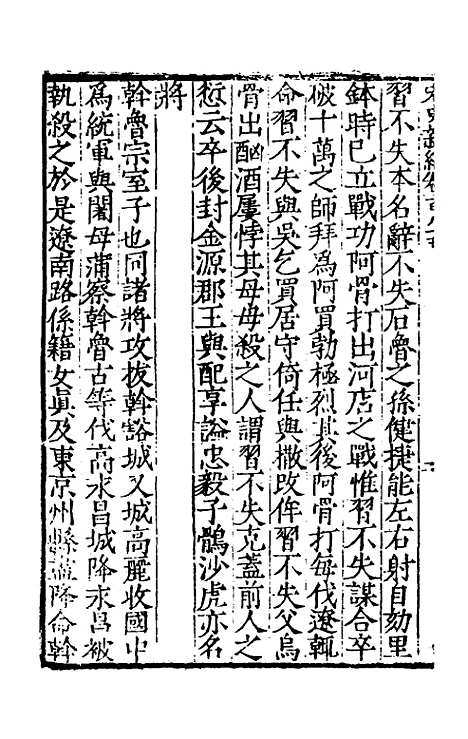 習不失本名辭不失石魯之孫健捷能左右射自劾里
鉢時已立戰功阿骨打出河店之戰惟習不失謀合卒
破十萬之師拜為阿買勃極烈其後阿骨打每伐遼輒
命習不失與吳乞買居守倚任與撒改侔習不失父烏
骨出酗酒屢悖其母母殺之人謂習不失克蓋前人之
愆云卒後封金源郡王與配享謚忠毅子鶻沙虎亦名
將
斡魯宗室子也同諸將攻拔斡豁城又城高麗收國中
為統軍與闍母蒲察斡魯古等伐高永昌城降永昌被
執殺之於是遼南路係籍女真及東京州縣盡降命斡